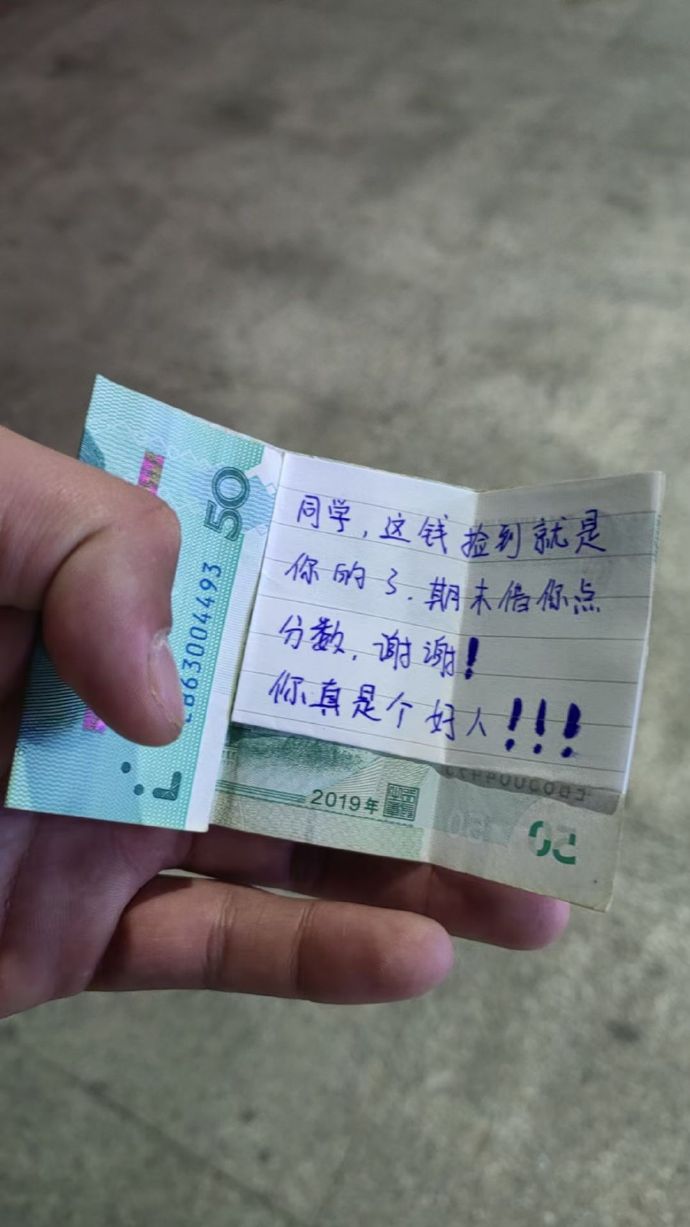 50
LB63004493
同学，这钱捡到就是
你的了．期末借你点
分数，谢谢！
你真是个好人！！！
2019年
50